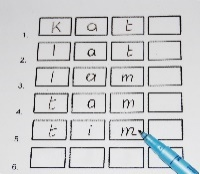 1. K a t
2. l a t
3. l a m
4. t a m
5. t i m
6.